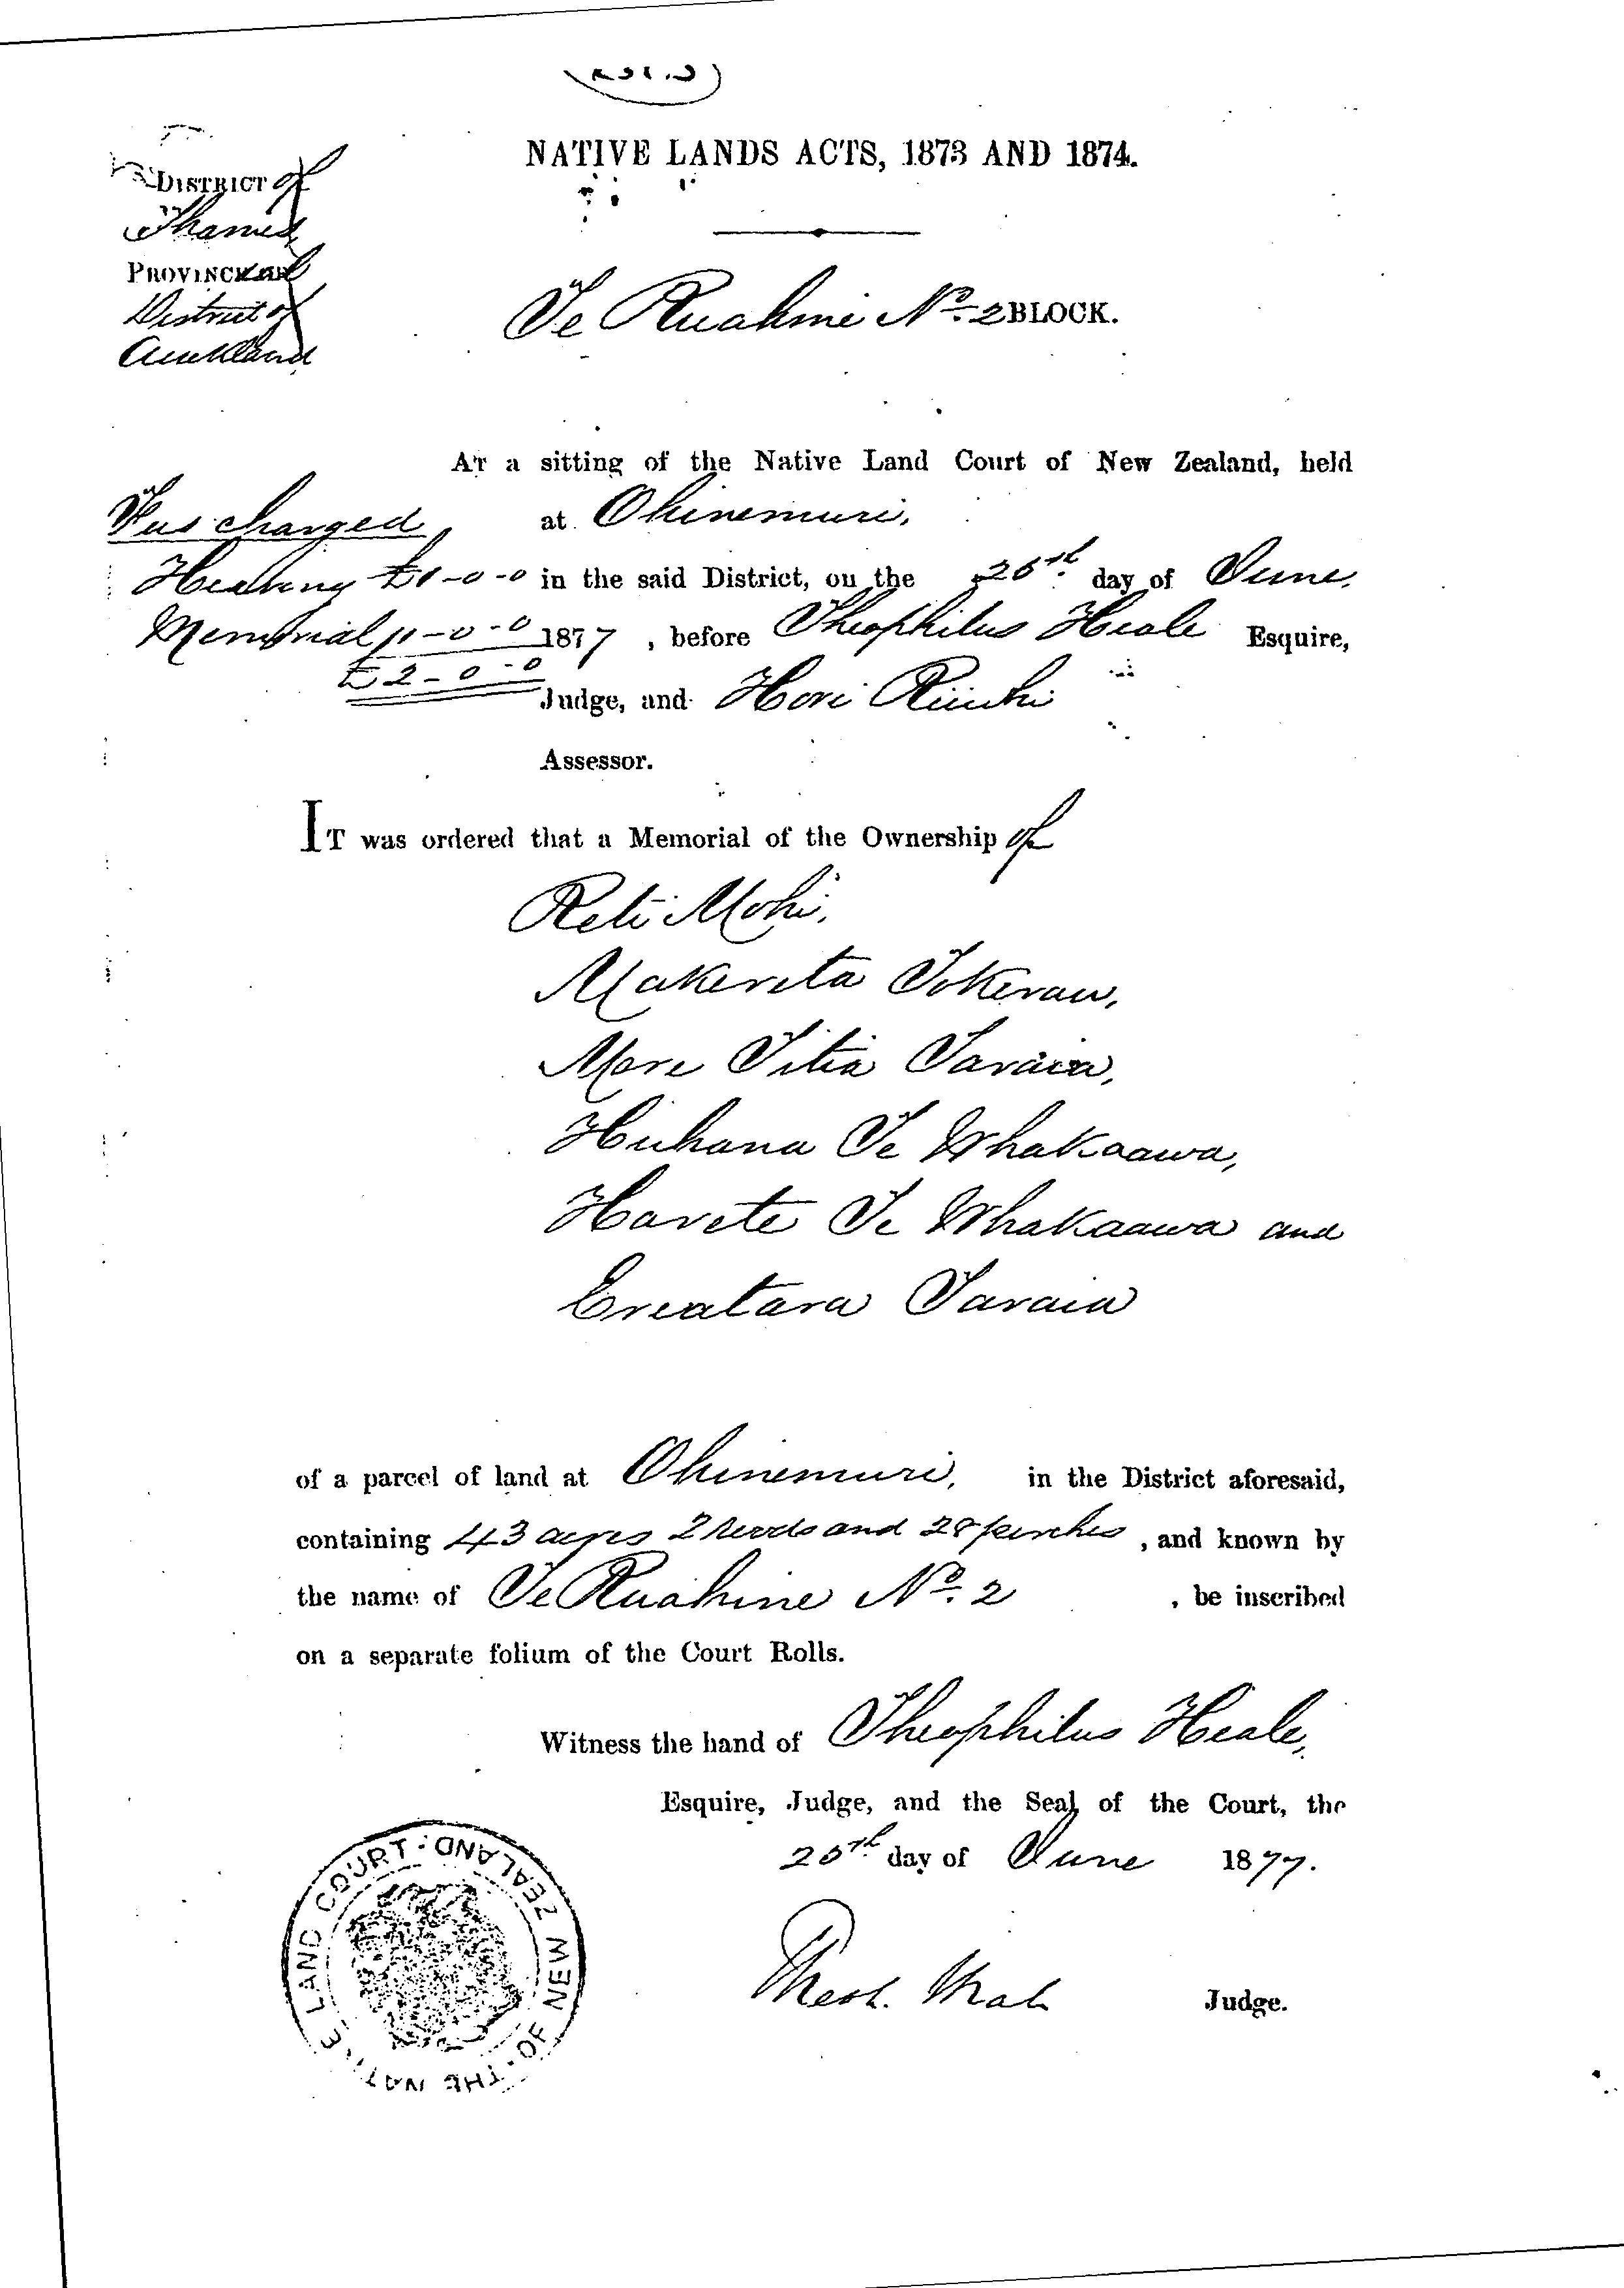 NATIVE LANDS ACTS, 1873 AND 1874.
DISTRICT of
Thames
PROVINCIAL
District of
Auckland
Te Ruahine No. 2 BLOCK.
AT a sitting of the Native Land Court of New Zealand, held
at Ohinemuri,
Fees charged
Hearing £1-0-0
Memorial "1-0-0
£2-0-0
in the said District, on the day of June,
1877, before Theophilus Heale Esquire,
Judge, and Hori
Assessor.
IT was ordered that a Memorial of the Ownership of
Reti Mohi,
Makereta Tokerau,
Mere Titia Taraia,
Hiihana Te Whakaawa,
Harete Te Whakaawa and
Ereatara Taraia
of a parcel of land at Ohinemuri, in the District aforesaid,
containing 43 acres 2 roods and 28 perches, and known by
the name of Te Ruahine No. 2, be inscribed
on a separate folium of the Court Rolls.
Witness the hand of Theophilus Heale,
Esquire, Judge, and the Seal of the Court, the
day of June 1877.
Theoh. Heale Judge.
THE NATIVE LAND COURT · OF NEW ZEALAND ·